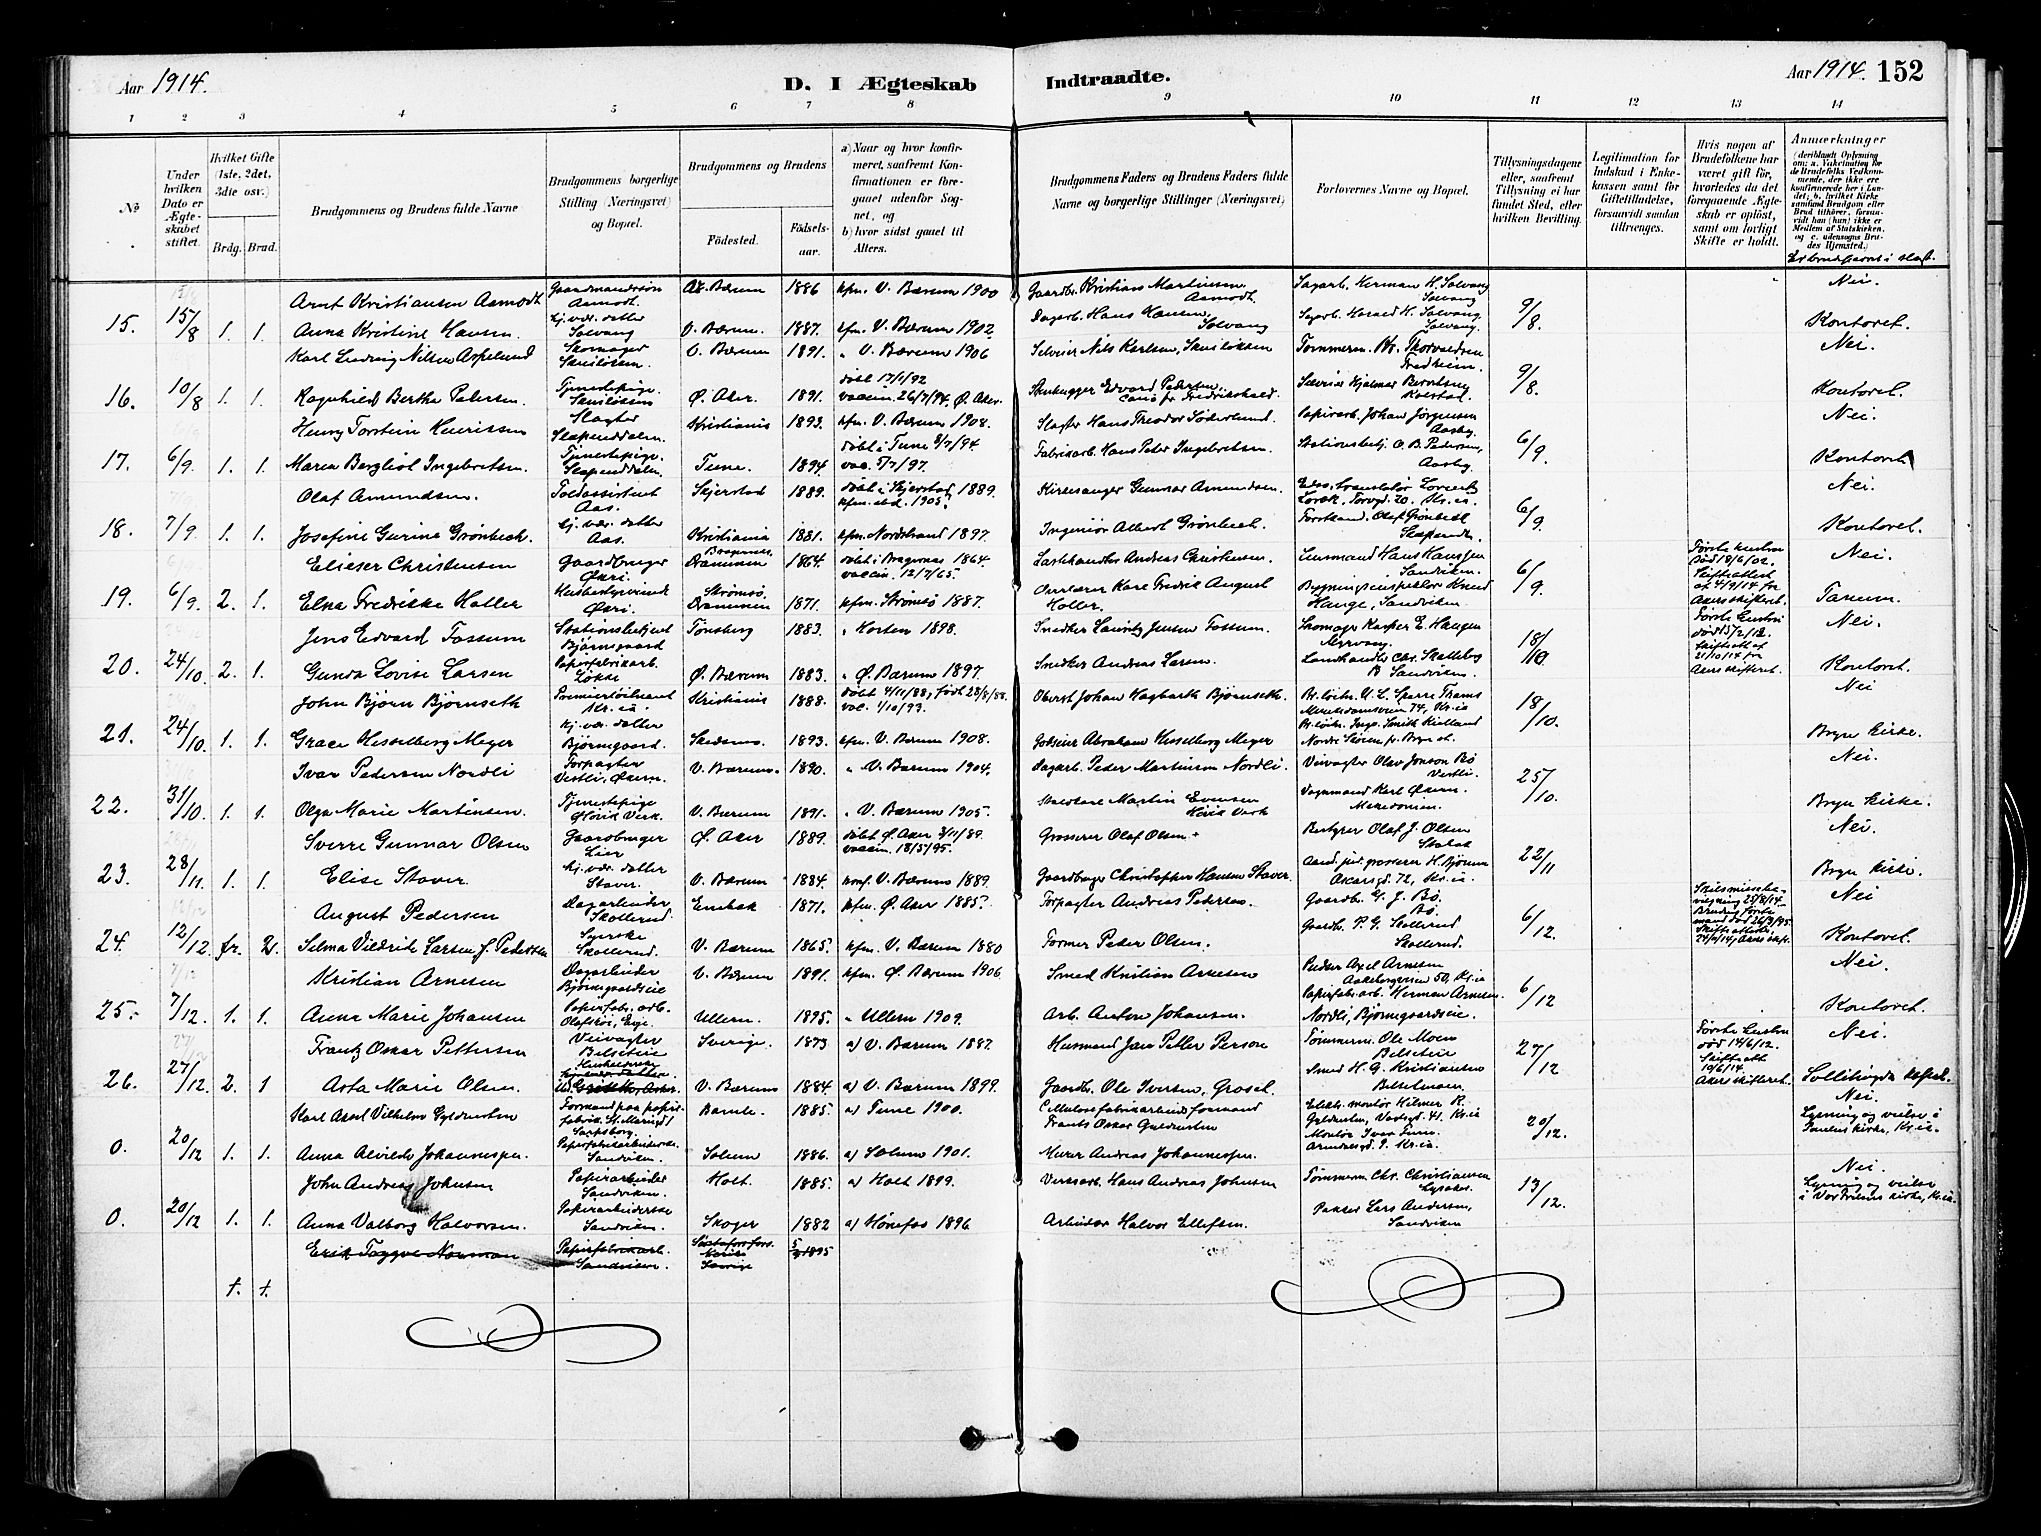 Aar 1914.
D. I Ægteskab Indtraadte.
Aar 1914. 152
1 2 3 4 5 6 7 8 9 10 11 12 13 14
No
Under hvilken Dato er Ægteskabet stiftet.
Hvilket Gifte (1ste, 2det, 3die osv.)
Brdg. Brud.
Brudgommens og Brudens fulde Navne
Brudgommens borgerlige Stilling (Næringsvei) og Bopæl.
Brudgommens og Brudens
Fødested. Fødselsaar.
a) Naar og hvor konfirmeret, saafremt Konfirmationen er foregaaet udenfor Sognet, og
b) hvor sidst gaaet til Alters.
Brudgommens Faders og Brudens Faders fulde Navne og borgerlige Stillinger (Næringsvei)
Forlovernes Navne og Bopæl.
Tillysningsdagene eller, saafremt Tillysning ei har fundet Sted, efter hvilken Bevilling.
Legitimation for Indskud i Enkekassen samt for Giftetilladelse, forsaavidt saadan tiltrænges.
Hvis nogen af Brudefolkene har været gift før, hvorledes da det foregaaende Ægteskab er opløst, samt om lovligt Skifte er holdt.
Anmærkninger
(deriblandt Oplysning om: a. Vakcination for de Brudefolks Vedkommende, der ikke ere konfirmerede her i Landet; b. hvilket Kirkesamfund Brudgom eller Brud tilhører, forsaavidt han (hun) ikke er Medlem af Statskirken, og c. udensogns Brudes Hjemsted.)
Arnt Kristiansen Aamodt Gaardmandssøn Aamodt. V. Bærum 1886 kfm. V. Bærum 1900 Gaardbr. Kristian Martinsen Aamodt Sagarb. Herman H. Solvang Solvang Nei.
15. 15/8 1. 1. Anna Kristine Hansen. hj.vær. datter Solvang V. Bærum. 1887. kfm. V. Bærum 1902. Dagarb. Hans Hansen, Solvang Sagarb. Harald H. Solvang, Solvang. 9/8. Kontoret.
Karl Ludvig Nilsen Aspelund Skomager V. Bærum 1891. " V. Bærum 1906 Nils Karlsen, Nei.
16. 10/8 1. 1. Ragnhild Berthe Pedersen. Tjenestepige. Ø. Aker. 1891. døbt 17/1/92 vaccin. 26/7/94. Ø. Aker. Stenhugger Edvard Pedersen, Hjalmar 9/8. Kontoret.
Henry Torstein Henrissen Slagter Slæpenddalen. Kristiania 1893. kfm. V. Bærum 1908. Slagter Hans Theodor Söderlund. Papirarb. Johan Jörgensen Aasby. Nei.
17. 6/9. 1. 1. Maren Bergliot Ingebretsen. Tjenestepige. Slæpenddalen. Tune. 1894. døbt i Tune 8/7/94. vac. 5/7/97. Fabrikarb. Hans Peter Ingebretsen. Stationsbetj. O. B. Pedersen, Aasby. 6/9. Kontoret.
Olaf Amundsen. Toldassistent Aas. Skjerstad 1889. døbt i Skjerstad, 1889. 1905. Kirkesanger Gunnar Amundsen. Torvgd. 20. Kr.ia Nei.
18. 7/9. 1. 1. Josefine Gurine Grönbech. hj. vær. datter Aas. Kristiania 1881. kfm. Nordstrand 1897. Ingeniör Albert Grönbech. Olaf Grönbech 6/9. Kontoret.
Elieser Christensen Gaardbruger Økri. Bragernes Drammen 1864. døbt i Bragernes 1864. vaccin. 12/7/65. Lasthandler Andreas Christensen. Lensmand Hans Hanssen Sandviken. Første hustru död 18/6/02. Skifteattest af 4/9/14 fra Akers skifteret. Nei.
19. 6/9. 2. 1. Elna Fredrikke Holler Husbestyrerinde Økri. Strømsø Drammen 1871. kfm. Strømsø 1887. Karl Fredrik August Holler. Bygningsinspektør Knud Hauge, Sandviken. 6/9. Tanum.
Jens Edvard Fossum Stationsbetjent Bjørnegaard Tönsberg 1883. " Horten 1898. Snedker Lauritz Jensen Fossum. Skomager Kasper E. Haugen Myrvang. Første hustru død 5/2/12. Skifteatt. af 21/10/14 fra Akers skifteret. Nei.
20. 24/10. 2. 1. Gunda Lovise Larsen Papirfabrikarb. Løkke Ø. Bærum 1883. " Ø. Bærum 1897. Snedker Andreas Larsen. Landhandler Chr. Skallebog Sandviken. 18/10 Kontoret.
John Bjørn Bjørnseth Premierløitnant Kr.ia. Kristiania 1888. døbt 4/11/88, født 28/8/88. vac. 1/10/93. Oberst Johan Hagbarth Bjørnseth. Nei
21. 24/10. 1. 1. Grace Hesselberg Meyer hj. vær. datter Bjørnegaard. Skedsmo. 1893. kfm. V. Bærum 1908. Godseier Abraham Hesselberg Meyer 18/10. Bryn kirke.
Ivar Pedersen Nordli Forpagter Vestli, Økern. V. Bærum. 1890. " V. Bærum 1904. Dagarb. Peder Martinsen Nordli. Veivogter Olav Jonson Bø Vestli. Nei.
22. 31/10. 1. 1. Olga Marie Martinsen. Tjenestepige Hövik Verk. V. Bærum 1891. " V. Bærum 1905. Martin Evensen Hövik Verk Karl Økern. 25/10. Bryn kirke.
Sverre Gunnar Olsen Gaardbruger Lier Ø. Aker 1889. døbt Ø. Aker 3/11/89. vaccin. 18/5/95. Grosserer Olaf Olsen. Bestyrer Olaf J. Olsen Stabæk Nei.
23. 28/11. 1. 1. Elise Staver. hj. vær. datter Staver. V. Bærum 1884. konf. V. Bærum 1889. Gaardbruger Christopher Hansen Staver. Oskarsgd. 72, Kr.ia. 22/11 Bryn kirke.
August Pedersen Dagarbeider Skollerud. Enebak 1871. kfm. Ø. Aker 1885. Forpagter Andreas Pedersen. Gaardb. G. J. Bø. Bø. Nei
24. 12/12. fr. 2. Selma Vildrik Larsen f. Pedersen Skollerud. V. Bærum 1865. kfm. V. Bærum 1880 Former Peder Olsen. Gaardb. P. G. Skollerud Skollerud. 6/12. Kontoret.
Kristian Arnesen Dagarbeider Bjørnegaardseie V. Bærum 1891. kfm. Ø. Bærum 1906. Smed Kristian Arnesen Axel Arnesen Nei.
25. 7/12. 1. 1. Anna Marie Johansen Papirfab. arb. Ullern. 1895. " Ullern 1909. Arb. Anton Johansen. Papirfabr.arb. Herman Arnesen. Nordli, Bjørnegaardseie. 6/12 Kontoret.
Frantz Oskar Pettersen Veivogter Belseteie Sverige. 1873 a) V. Bærum 1887. Husmand Jan Petter Person Tømmerm. Ole Moen Belseteie Første hustru død 14/6/12. Skifteatt. 19/6/14. Akers skifteret. Nei.
26. 27/12. 2. 1 Asta Marie Olsen. V. Bærum 1884. a) V. Bærum 1899. Gaardb. Ole Iversen, Smed H. G. Kristiansen 27/12 Sollihøgda kapel.
Karl Axel Vilhelm Gyldensten Formand paa papirfabrik St. Marigd 1 Sarpsborg. Bamle. 1885. a) Tune 1900. Cellulosefabrikarbeiderformand Frants Oskar Gyldensten Elektr. montör Hilmer R. Gyldensten, 41. Kr.ia Nei. Lysning og vielse i Paulus kirke, Kr.ia.
0. 20/12 1. 1. Anna Alvilde Johannessen. Papirfabrikarbeiderske. Sandviken. Solum 1886. a) Solum 1901. Murer Andreas Johannessen. Montör Ivar 20/12.
John Andreas Johnsen Papirarbeider Sandviken. Holt. 1885. a) Holt 1899. Verksarb. Hans Andreas Johnsen Tømmerm. Chr. Christiansen Lysaker. Nei. Lysning og vielse i Vor Frelsers kirke, Kr.ia.
0. 20/12 1. 1. Anna Valborg Halvorsen. Papirarbeiderske Sandviken. Skoger 1882 a) Hønefos 1896. Arbeider Halvor Ellefsen. Lars Andersen, Sandviken 13/12.
Erik Tryggve Norman Papirfabrikarb. Sandviken. Sverige 1895
1. 1.